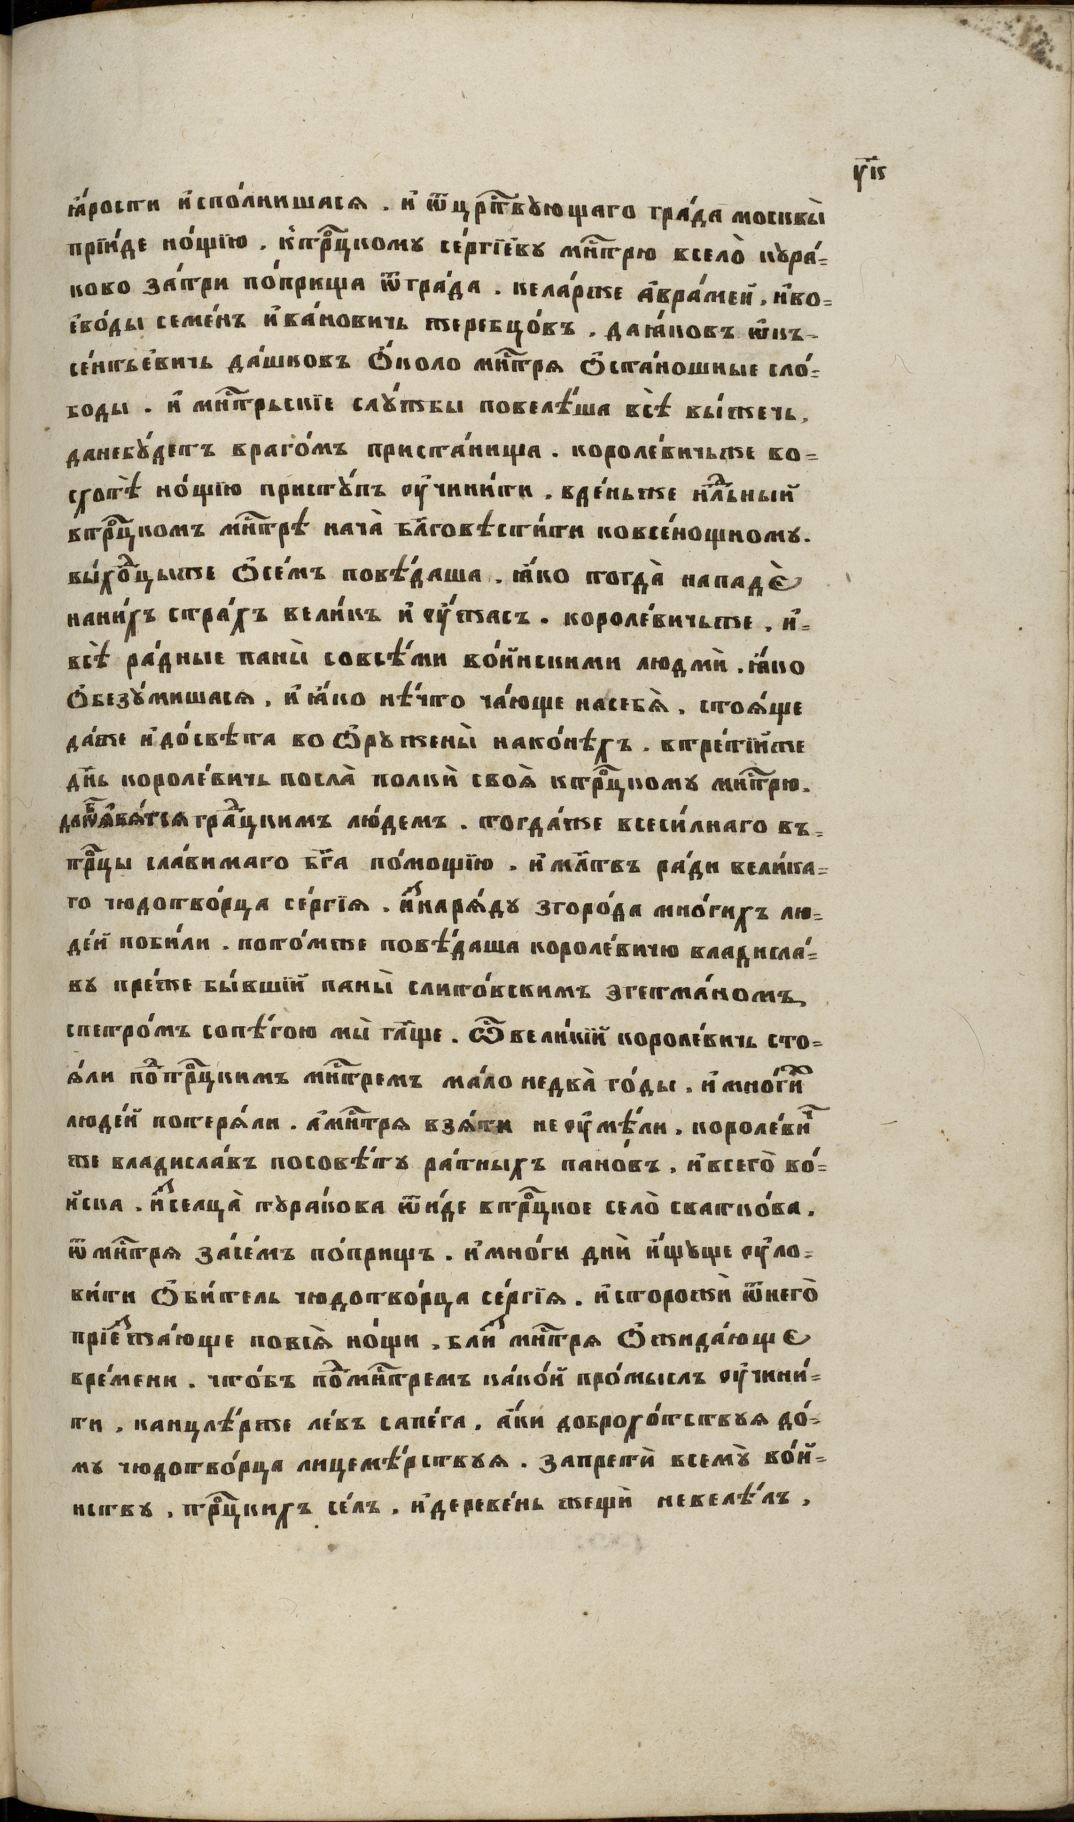 ұ҃іѕ
ꙗ́рости и҆спо́лнишася . и҆ ѿ црⷭ҇твующаго гра́да москвы̀
прїи́де но́щїю . к̾трⷪ҇цкому се́ргїеву мнⷭ҇трю в село̀ кура́-
ково за́три по́прища ѿгра́да . кела́рже а҆вра́мей , и҆во-
ево́ды семе́нъ и҆ва́новичь жеребцо́въ , да ꙗ́ковъ ѡ҆въ-
се́нтьевичь да́шковъ ѻ҆́коло мнⷭ҇тря ѻ҆ста́ношные сло́-
боды . и҆ мнⷭ҇трьскїе слу́жбы повелѣ́ша всѣ̀ вы́жечь ,
данебу́детъ враго́мъ приста́нища . короле́вичьже во-
схотѣ̀ но́щїю присту́пъ ᲂу҆чини́ти . вде́ньже и҆лⷣьный
втрⷪ҇цкомъ мнⷭ҇трѣ нача̀ бл҃говѣсти́ти ковсе́нощному .
выхо́ⷣцыже ѻ҆се́мъ повѣ́даша , ꙗ҆́ко тогда̀ нападѐ
нани́хъ стра́хъ вели́къ и҆ ᲂу҆́жасъ . короле́вичьже , и҆-
всѣ̀ ра́дные паны̀ совсѣ́ми во́йнскими людмѝ . ꙗ҆́ко
ѻ҆безу́мишася , и҆ ꙗ҆́ко нѣ́что ча́юще насебѧ̀ , стоѧ́ще
да́же и҆ до́свѣта во ѻ҆ружены̀ нако́нѣхъ . втре́тїйже
дн҃ь короле́вичь посла̀ полкѝ своѧ̀ ктрⷪ҇цкому мнⷭ҇трю .
да ѿꙗ́вѧтсѧ гра́ⷣцкимъ лю́демъ . тогда́же всеси́лнаго въ-
трⷪ҇цы сла́вимаго бг҃а по́мощїю . и҆ мл҃твъ ра́ди вели́ка-
го чюдотво́рца се́ргїѧ . и҆зⷥнарѧ́ду згоро́да мно́гихъ лю-
де́й поби́ли . пото́мже повѣ́даша короле́вичю владисла́-
ву пре́же бы́вшїй паны̀ слито́вскимъ эгетма́номъ
спетро́мъ сопѣ́гою мы̀ гл҃ще . ѽ вели́кїй короле́вичь сто-
ѧ́ли поⷣтрⷪ҇цкимъ мнⷭ҇тремъ ма́ло недва̀ го́ды , и҆ мно́гиⷯ
люде́й потерѧ́ли . а҆ мнⷭ҇трѧ взѧ́ти не ᲂу҆мѣ́ли . короле́виⷱ
же владисла́въ посовѣ́ту ра́тныхъ пано́въ , и҆ всего̀ во́-
йска . и҆зⷥселца̀ туракова ѿи́де втрⷪ҇цкое село̀ сватко́ва ,
ѿ мнⷭ҇трѧ за́семъ по́прищъ . и҆ мно́ги днѝ и҆́щуще ᲂу҆ло-
ви́ти ѻ҆би́тель чюдотво́рца се́ргїѧ . и҆ сторожѝ ѿнего̀
прїеⷥжа́юще повсѧ̀ но́щи , блиⷥ мнⷭ҇трѧ ѻ҆жида́юще
вре́мени . что́бъ поⷣмнⷭ҇тремъ како́й про́мыслъ ᲂу҆чини́-
ти . канцлѣ́рже ле́въ сапе́га , а҆́ки доброхо́тствуѧ до́-
му чюдотво́рца лицемѣ́рствуѧ . запретѝ всему̀ во́й-
нству , трⷪ҇цкихъ се́лъ , и҆ дереве́нь жещѝ невелѣ́лъ ,